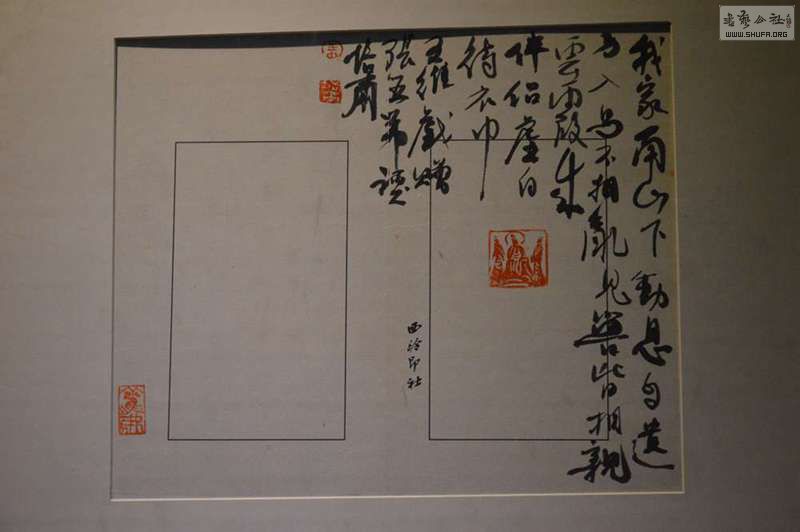 我家南山下動息自遺
身入鳥不相亂見獸皆相親
雲霞成
伴侶虛白
侍衣巾
王維戲贈
張五弟諲
西泠印社
書藝公社
WWW.SHUFA.ORG